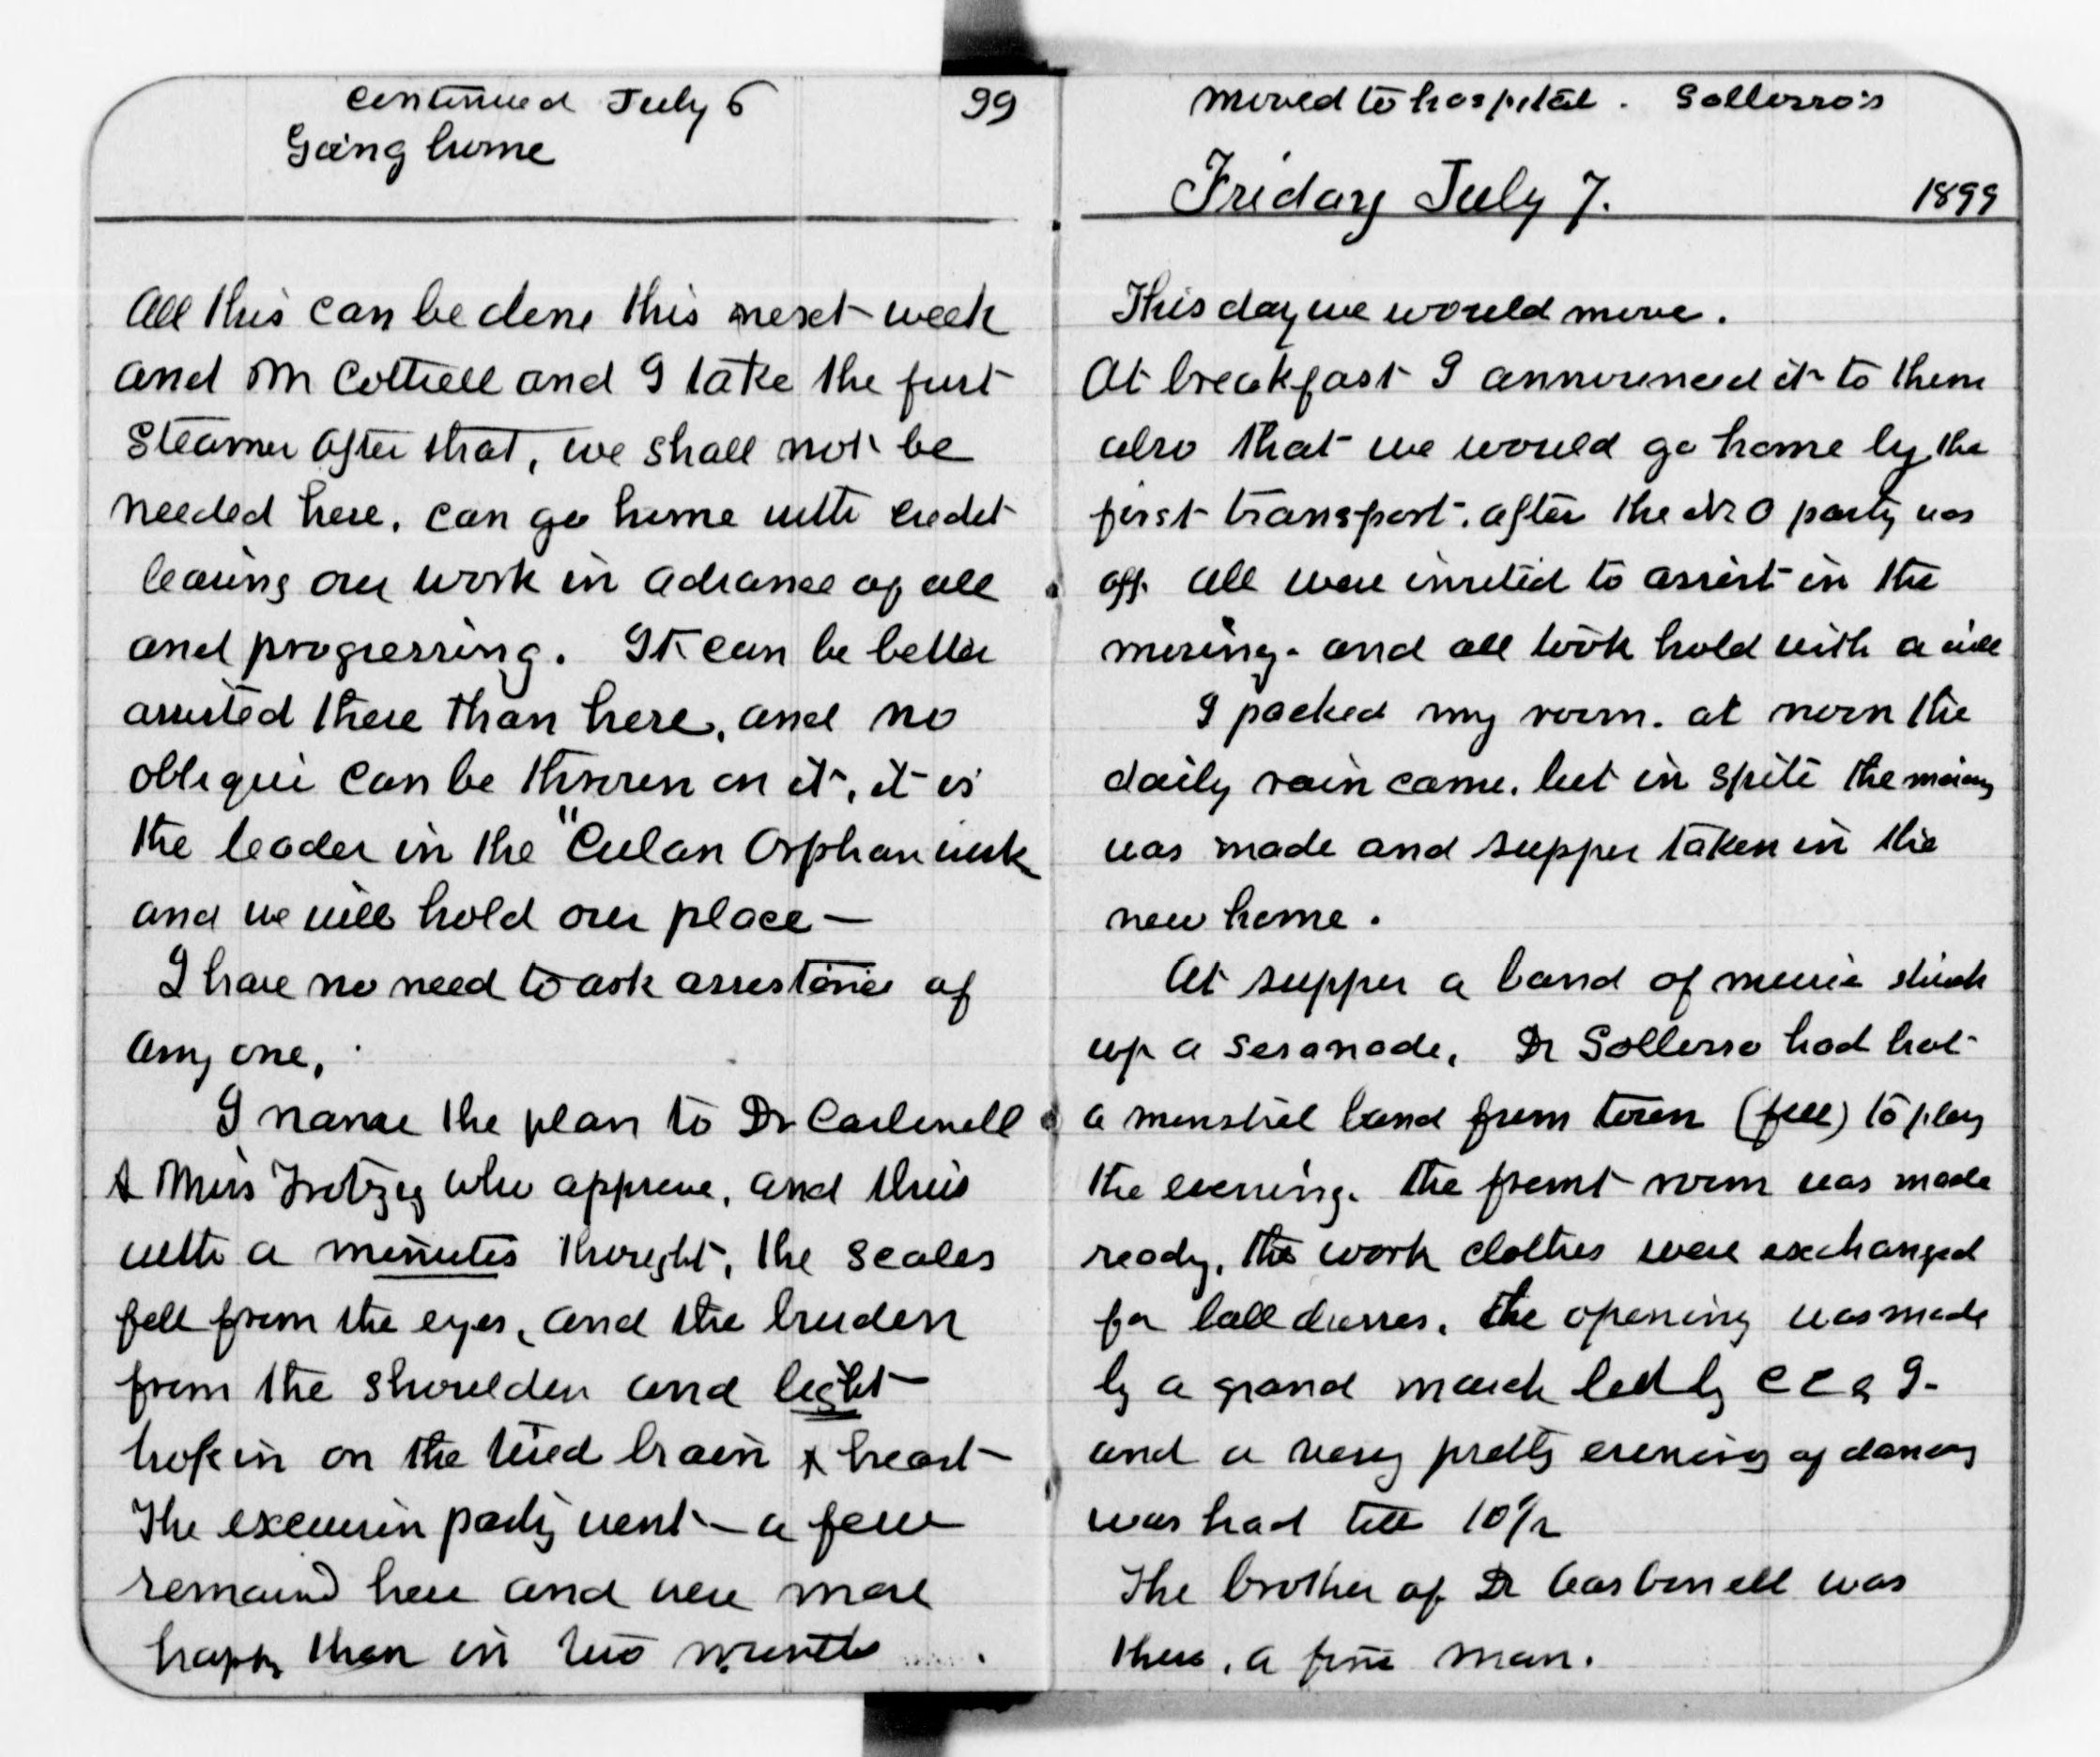 continued July 6 99
Going home
All this can be done this next week
and Mr Cottrell and I take the first
Steamer after that, we shall not be
needed here, can go home with credit
leaving our work in advance of all
and progressing. It can be better
assisted there than here, and no
obliqui can be thrown on it, it is
the leader in the "Cuban Orphan work
and we will hold our place —
I have no need to ask assistance of
any one,
I name the plan to Dr Carbonell
& Miss who approve, and thus
with a minutes thought, the scales
fell from the eyes, and the burden
from the shoulders and light
broke in on the tired brain & heart
The excursion party went — a few
remained here and were more
happy than in two months
Moved to hospital. Sollosso's
Friday July 7. 1899
This day we would move.
At breakfast I announced it to them
also that we would go home by the
first transport. after the N O party was
off. All were invited to assist in the
moving. and all took hold with a will
I packed my room. at noon the
daily rain came. but in spite the moving
was made and supper taken in the
new home.
At supper a band of music struck
up a seranade, Dr Sollosso had
a minstrel band from town (full) to play
the evening. the front room was made
ready, the work clothes were exchanged
for ball dresses. the opening was made
by a grand march led by C C & I-
and a very pretty evening of dancing
was had till 10 1/2
The brother of Dr Carbonell was
there, a fine man.